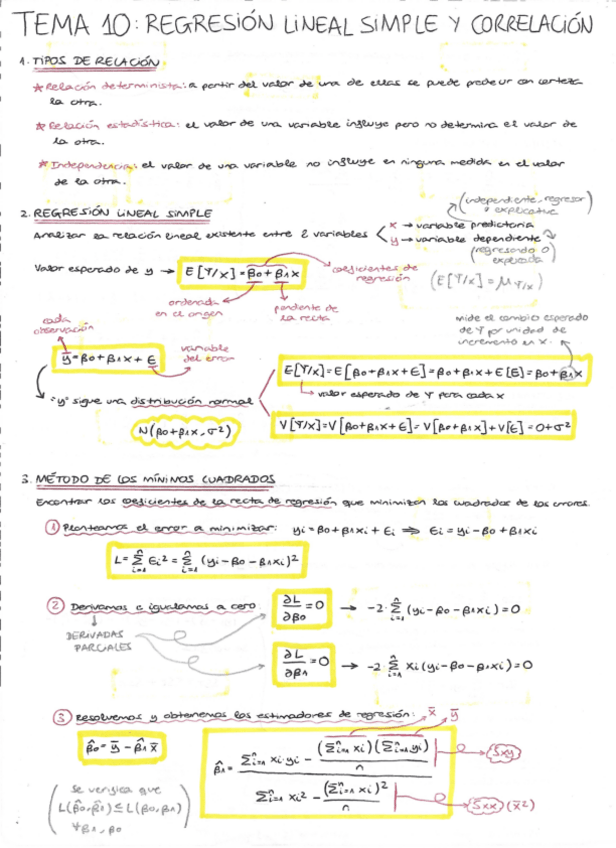 TEMA 10: REGRESIÓN LINEAL SIMPLE Y CORRELACIÓN
1. TIPOS DE RELACIÓN
* Relación determinista: a partir del valor de una de ellas se puede predecir con certeza
la otra.
* Relación estadística: el valor de una variable influye pero no determina el valor de
la otra.
* Independencia: el valor de una variable no influye en ninguna medida en el valor
de la otra.
2. REGRESIÓN LINEAL SIMPLE
(independiente, regresor y explicativa)
Analizar la relación lineal existente entre 2 variables
x → variable predictoria
y → variable dependiente
(regresando o explicada)
Valor esperado de y → E[Y/X] = β0 + β1x
coeficientes de regresión
(E[Y/X] = μY/X)
ordenada en el origen
pendiente de la recta
mide el cambio esperado
de Y por unidad de
incremento en X.
cada observación
variable del error
y = β0 + β1x + ε
E[Y/X] = E[β0 + β1x + ε] = β0 + β1x + E[ε] = β0 + β1x
valor esperado de Y para cada x
"y" sigue una distribución normal
N(β0 + β1x, σ²)
V[Y/X] = V[β0 + β1x + ε] = V[β0 + β1x] + V[ε] = 0 + σ²
3. MÉTODO DE LOS MÍNIMOS CUADRADOS
Encontrar los coeficientes de la recta de regresión que minimizen los cuadrados de los errores.
① Planteamos el error a minimizar: yi = β0 + β1xi + εi ⟹ εi = yi - β0 + β1xi
L = Σⁿi=1 εi² = Σⁿi=1 (yi - β0 - β1xi)²
② Derivamos e igualamos a cero
∂L/∂β0 = 0 → -2·Σⁿi=1 (yi - β0 - β1xi) = 0
DERIVADAS
PARCIALES
∂L/∂β1 = 0 → -2 Σⁿi=1 xi(yi - β0 - β1xi) = 0
③ Resolvemos y obtenemos los estimadores de regresión:
x̄ ȳ
β̂0 = ȳ - β̂1 x̄
β̂1 = (Σⁿi=1 xi·yi - (Σⁿi=1 xi)(Σⁿi=1 yi)/n) / (Σⁿi=1 xi² - (Σⁿi=1 xi)²/n)
Sxy
Sxx (x̄²)
se verifica que
L(β̂0, β̂1) ≤ L(β0, β1)
∀ β1, β0